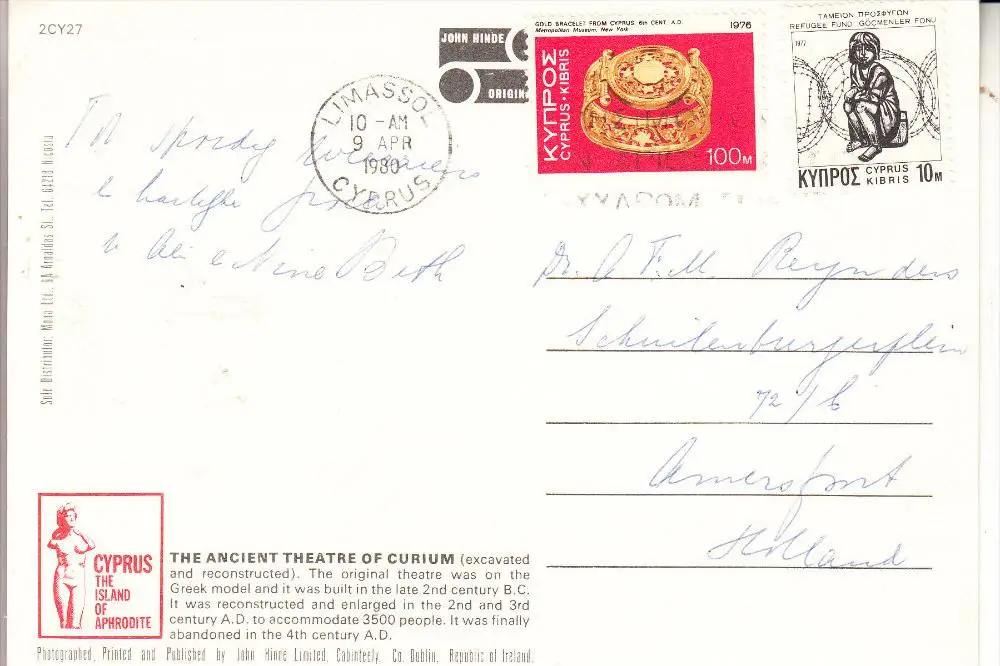 2CY27
JOHN HINDE
ORIGIN
GOLD BRACELET FROM CYPRUS 6th CENT. A.D.
Metropolitan Museum, New York
1976
ΚΥΠΡΟΣ
CYPRUS · KIBRIS
100M
ΤΑΜΕΙΟΝ ΠΡΟΣΦΥΓΩΝ
REFUGEE FUND GÖÇMENLER FONU
1977
ΚΥΠΡΟΣ CYPRUS KIBRIS 10M
LIMASSOL
10 -AM
9 APR
1980
CYPRUS
spoedig
hartelijke
Nine Beth
Dr. A F.M. Reynders
Schuilenburgerplein
72/6
Amersfoort
Holland
Sole Distributor: Ltd., St., Tel. Nicosia
CYPRUS
THE
ISLAND
OF
APHRODITE
THE ANCIENT THEATRE OF CURIUM (excavated
and reconstructed). The original theatre was on the
Greek model and it was built in the late 2nd century B.C.
It was reconstructed and enlarged in the 2nd and 3rd
century A.D. to accommodate 3500 people. It was finally
abandoned in the 4th century A.D.
Photographed, Printed and Published by John Hinde Limited, Cabinteely, Co. Dublin, Republic of Ireland.